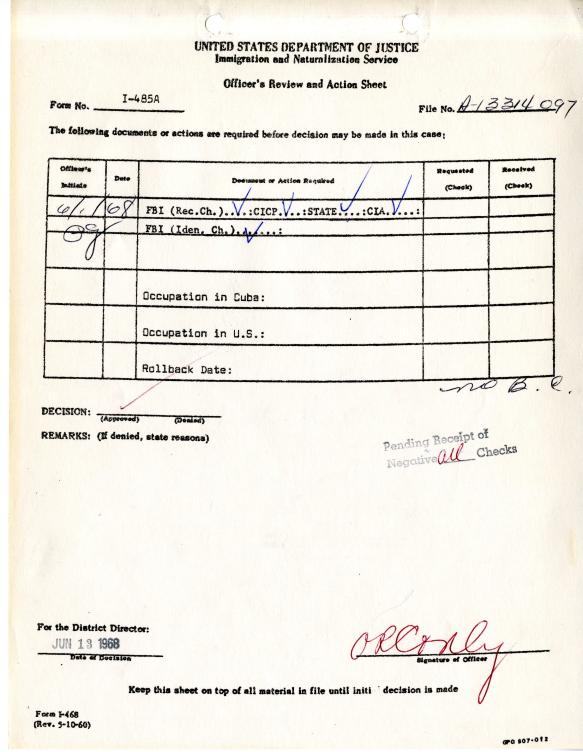 UNITED STATES DEPARTMENT OF JUSTICE
Immigration and Naturalization Service
Officer's Review and Action Sheet
Form No. I-485A
File No. A-13314097
The following documents or actions are required before decision may be made in this case:
Officer's Initials Date Document or Action Required Requested (Check) Received (Check)
6/1/68 FBI (Rec.Ch.)...:CICP...:STATE....:CIA....:
FBI (Iden. Ch.)......:
Occupation in Cuba:
Occupation in U.S.:
Rollback Date:
no B.C.
DECISION: (Approved) (Denied)
REMARKS: (If denied, state reasons)
Pending Receipt of
Negative all Checks
For the District Director:
JUN 13 1968
Date of Decision
Signature of Officer
Keep this sheet on top of all material in file until initi decision is made
Form I-468
(Rev. 5-10-60)
GPO 907-012